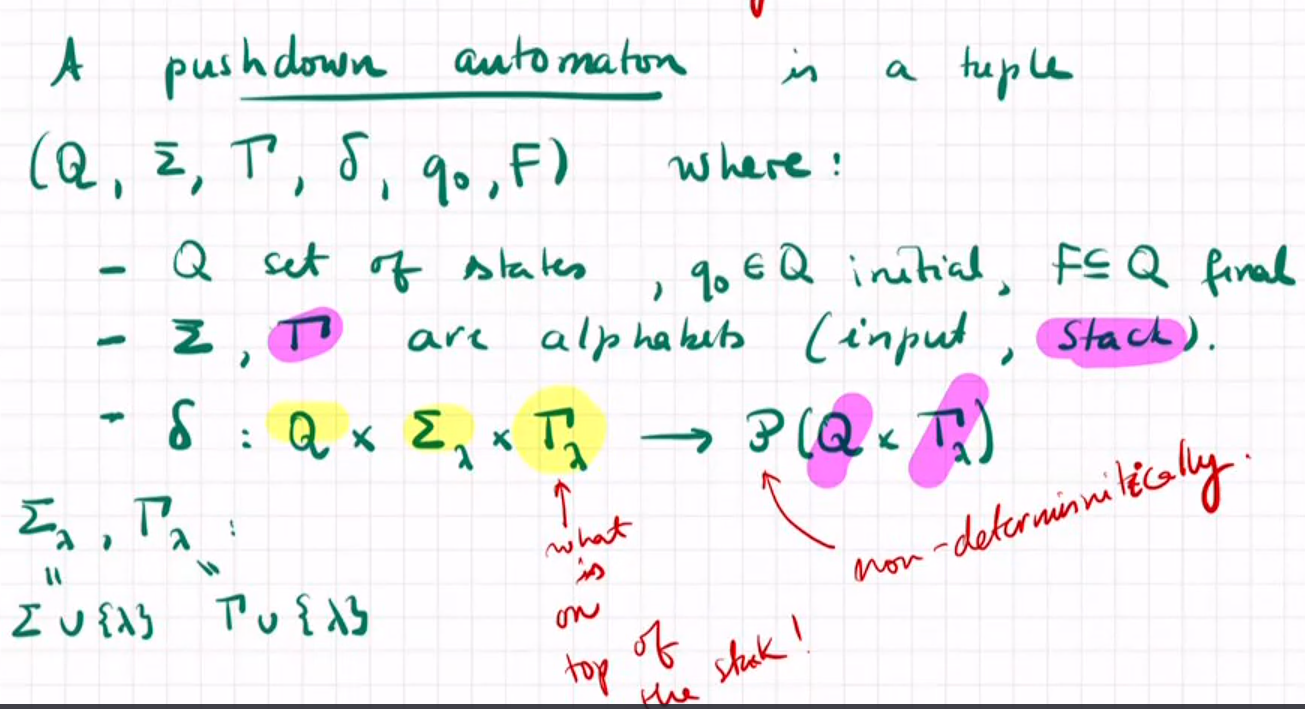 A pushdown automaton is a tuple
(Q, Σ, Γ, δ, q₀, F) where:
- Q set of states, q₀ ∈ Q initial, F ⊆ Q final
- Σ, Γ are alphabets (input, stack).
- δ : Q × Σ_λ × Γ_λ → P(Q × Γ_λ)
Σ_λ, Γ_λ :
" "
Σ ∪ {λ} Γ ∪ {λ}
what
is
on
top of
the stack!
non-deterministically.